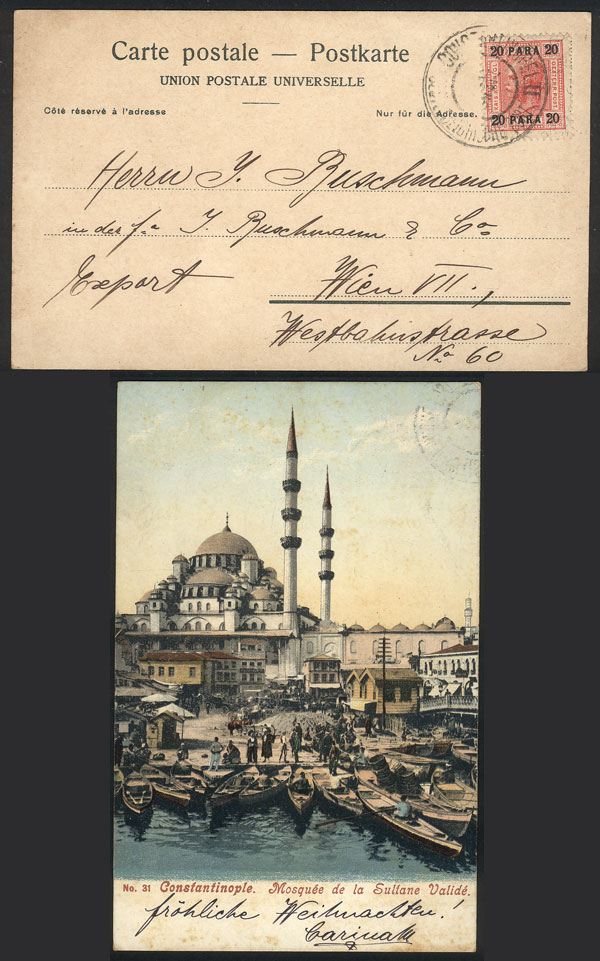 Carte postale — Postkarte
UNION POSTALE UNIVERSELLE
Côté réservé à l'adresse
Nur für die Adresse.
20 PARA 20
20 PARA 20
Herrn J. Buschmann
in der fa J. Buschmann & Co
Export
Wien VII.,
Westbahnstrasse
No 60
No. 31 Constantinople. Mosquée de la Sultane Validé.
fröhliche Weihnachten!